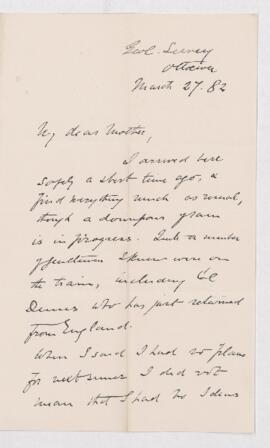 Geol. Survey
Ottawa
March 27. 82
My dear Mother,
I arrived here
safely a short time ago, &
find everything much as usual,
though a downpour of rain
is in progress. Quite a number
of gentlemen I knew were on
the train, including
Dennis who has just returned
from England.
When I said I had no plans
for next summer I did not
mean that I had no ideas